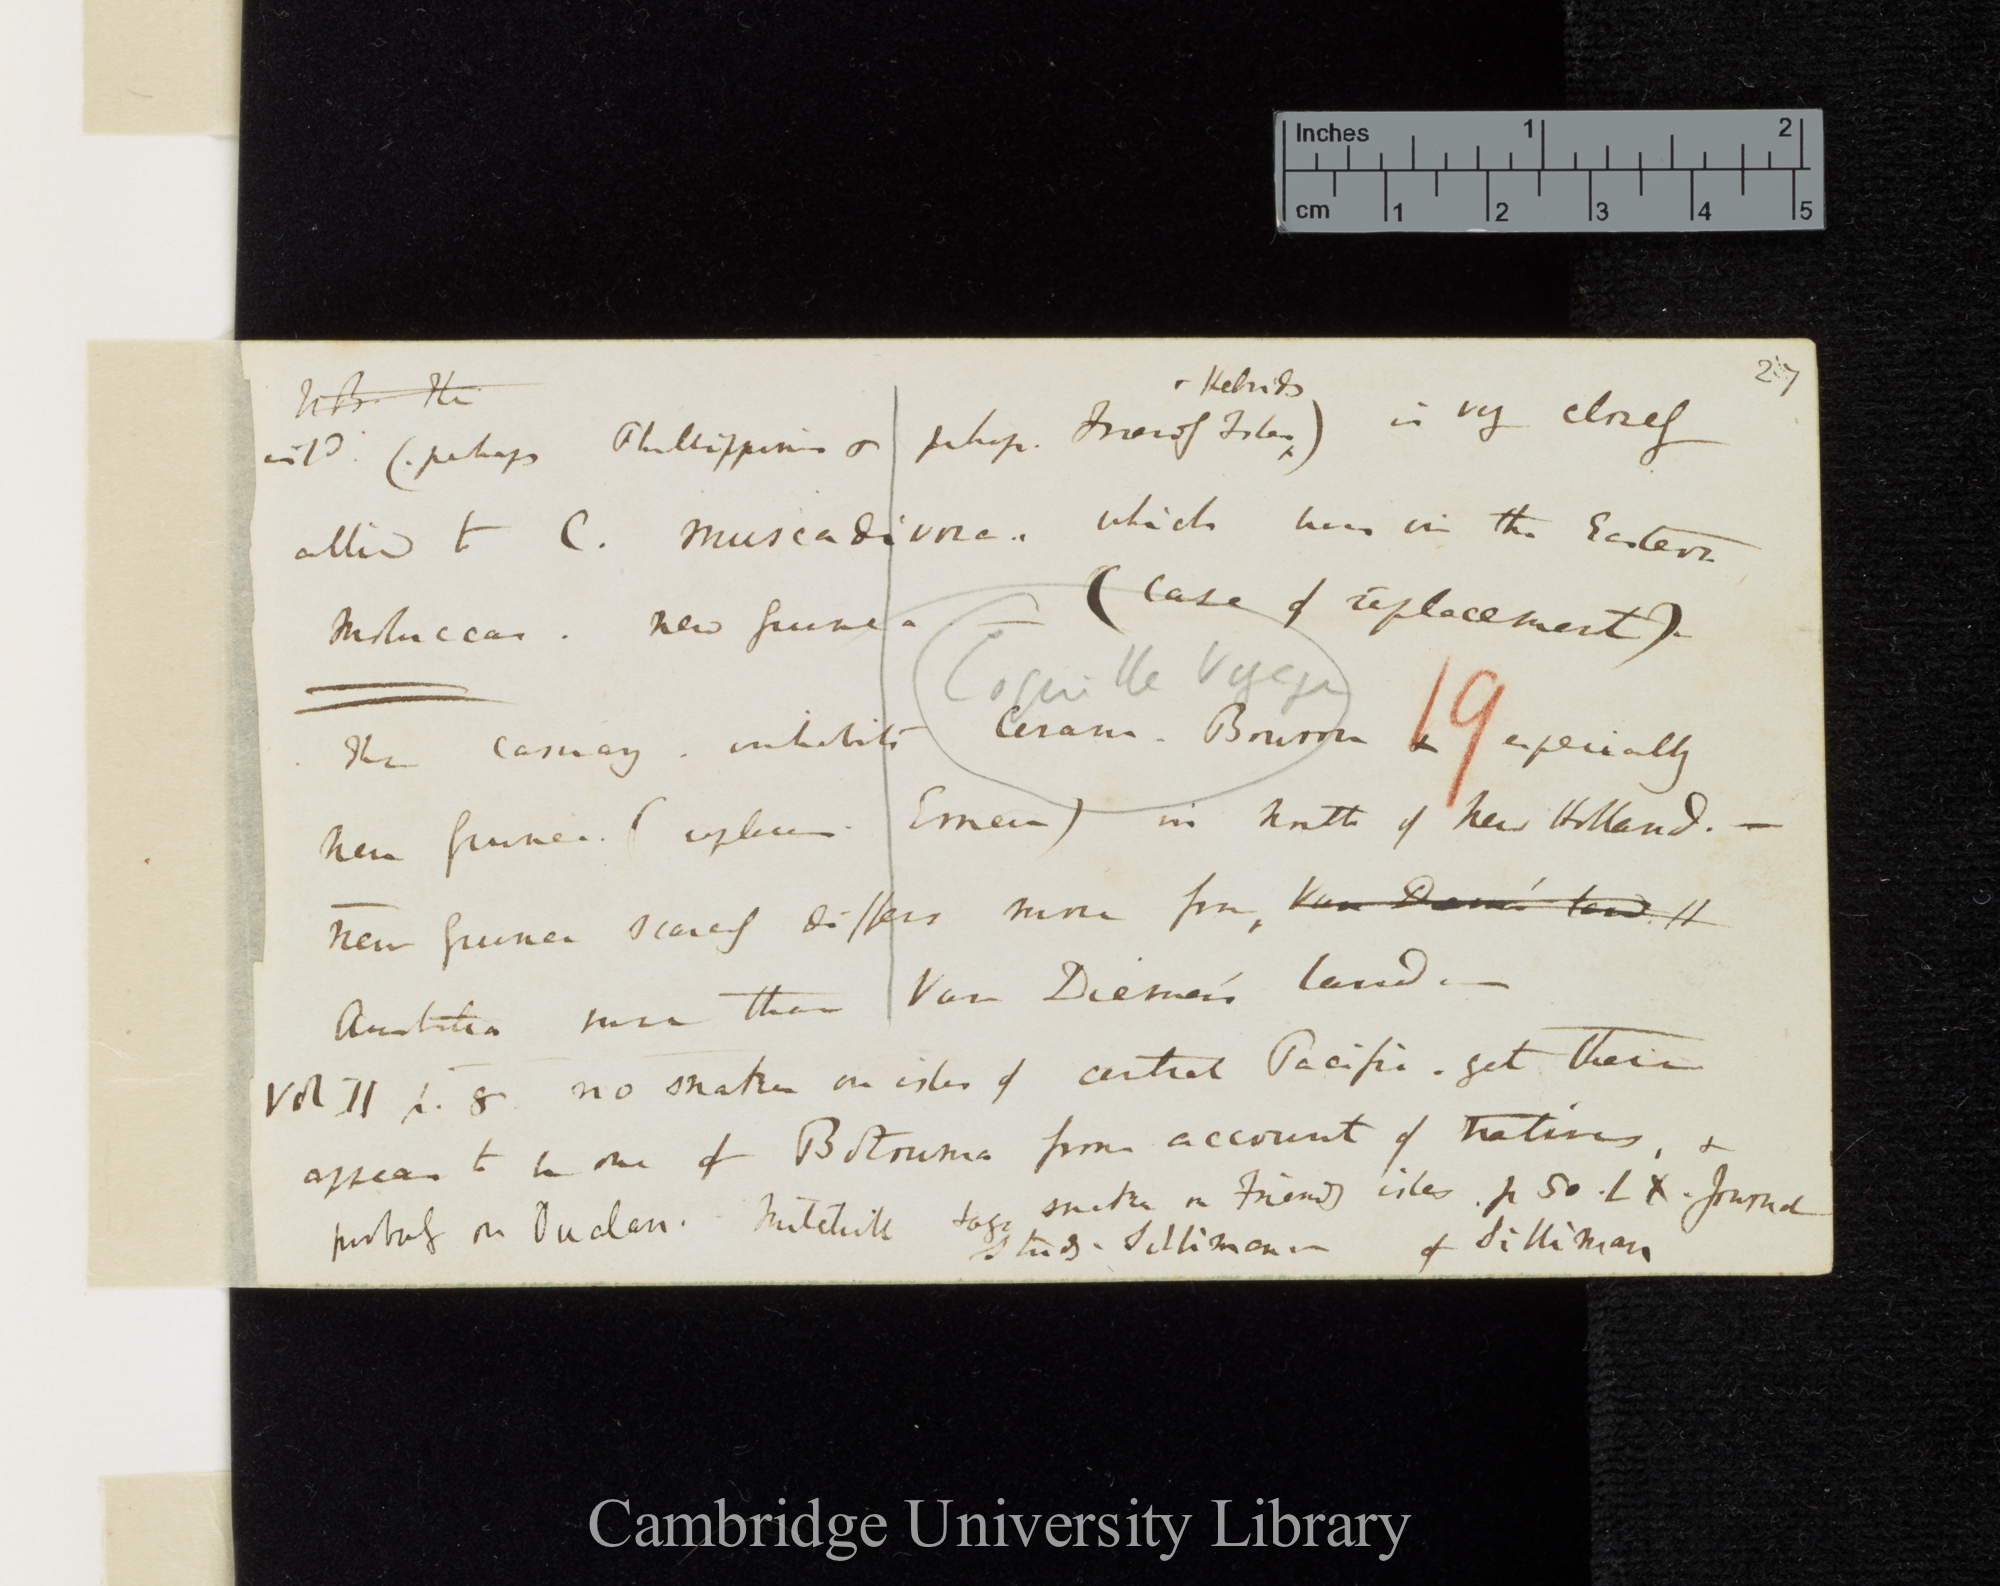 Inches 1 2
cm 1 2 3 4 5
27
N.B. The
& Hebrids
isld. (perhaps Phillippines & perhaps Friendly Isles) is very closely
allied to C. muscadivora. which lives in the Eastern
Moluccas. New Guinea = (case of replacement).
Coquille Voyage
19
The casuary inhabits Ceram. Bouron & especially
New Guinea. (replaces Emeu) in north of New Holland. —
New Guinea scarcely differs more from Van Diemen's land. It
Australia more than Van Diemen's land. —
Vol II p. 8. no snakes on isles of central Pacific. yet there
appears to be one at Rotouma from account of natives, &
probably on Oualan. Mitchill says snakes on Friendly isles. p 50. L X. Journal
Study. Silliman of Silliman
Cambridge University Library